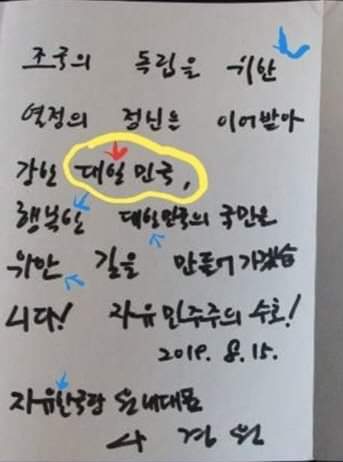 조국의 독립을 위한
열정의 정신을 이어받아
강한 대일민국,
행복한 대일민국의 국민을
위한 길을 만들어 가겠습
니다! 자유민주주의 수호!
2019. 8. 15.
자유한국당 원내대표
나경원